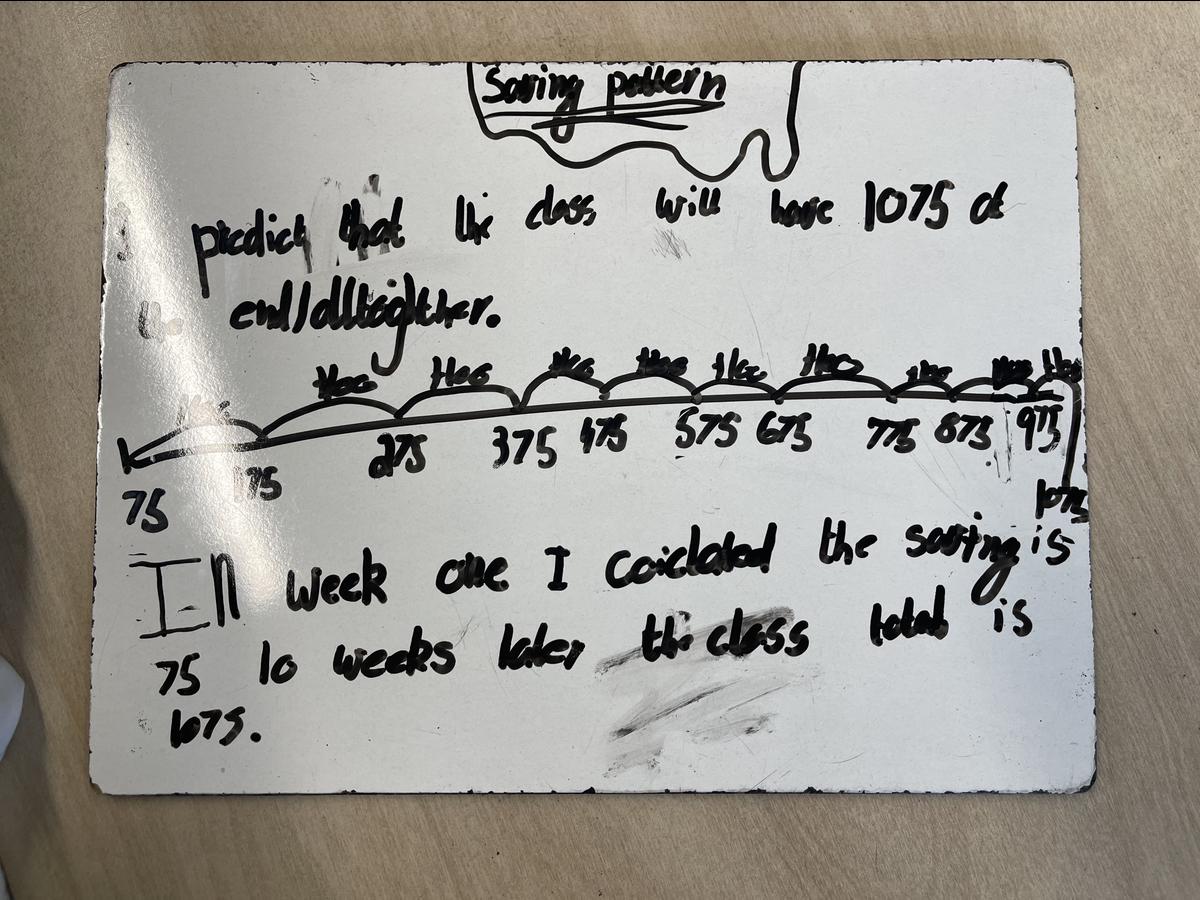 Saving pattern
I predict that the class will have 1075 at
the end/alltogther.
+100 +100 +100 +100 +100 +100 +100 +100 +100 +100
75 175 275 375 475 575 675 775 875 975
1075
In week one I the saving is
75 10 weeks later the class total is
1075.